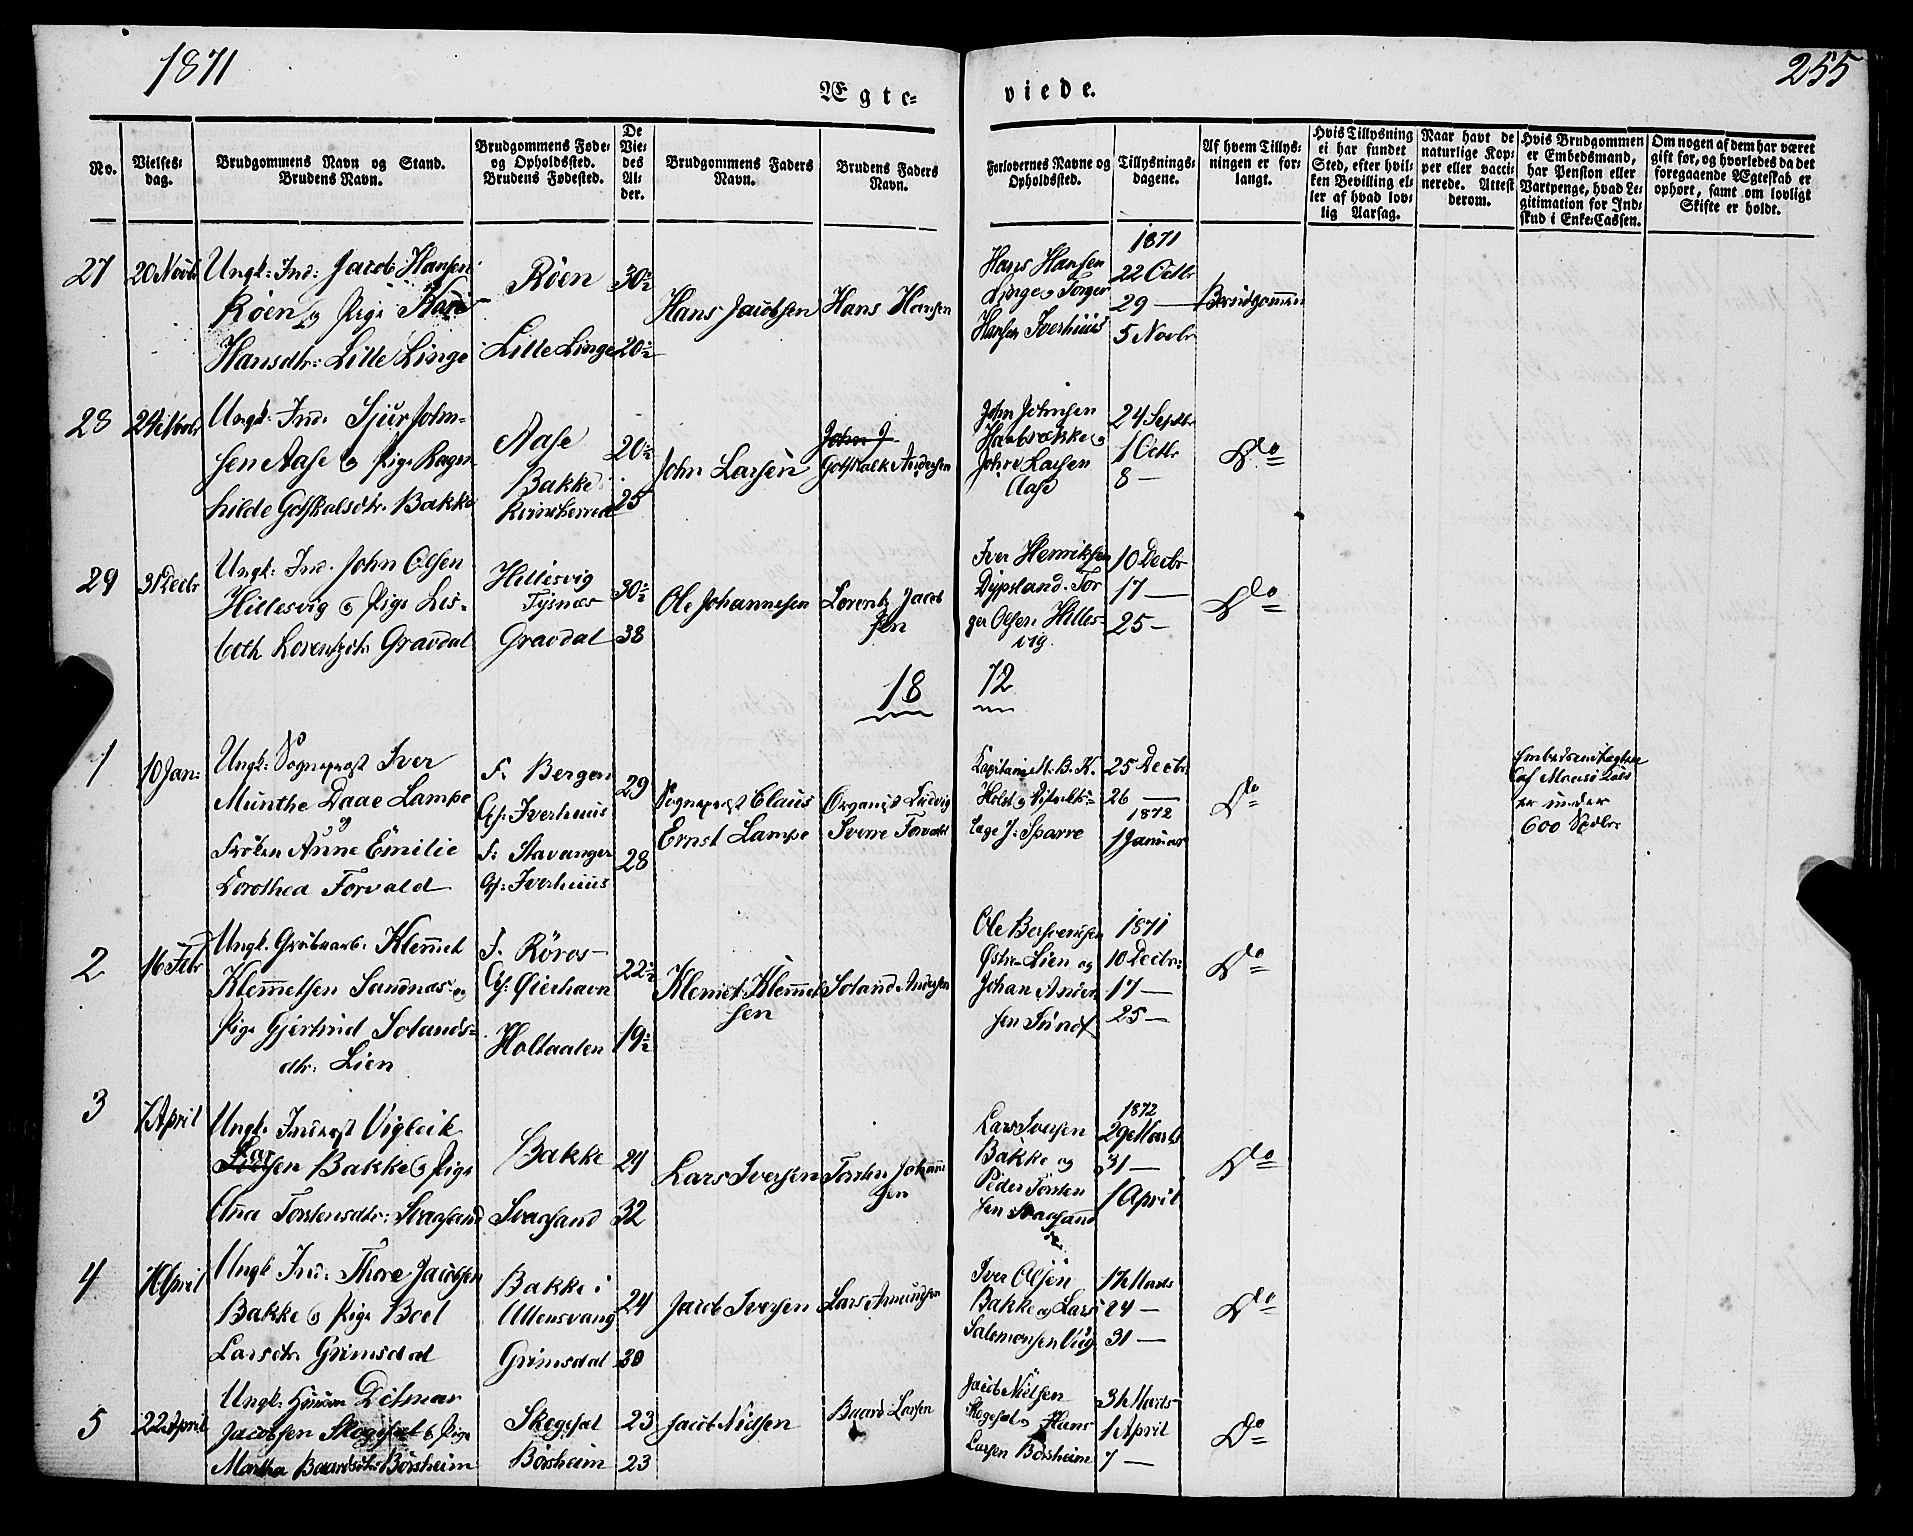 1871
255
Ægte-
viede.
No.
Vielses-
dag.
Brudgommens Navn og Stand.
Brudens Navn.
Brudgommens Føde-
og Opholdssted.
Brudens Fødested.
De
Vie-
des
Al-
der.
Brudgommens Faders
Navn.
Brudens Faders
Navn.
Forlovernes Navne og
Opholdssted.
Tillysnings-
dagene.
Af hvem Tillys-
ningen er for-
langt.
Hvis Tillysning
ei har fundet
Sted, efter hvil-
ken Bevilling el-
ler af hvad lov-
lig Aarsag.
Naar havt de
naturlige Kop-
per eller vacci-
nerede. Attest
derom.
Hvis Brudgommen
er Embedsmand,
har Pension eller
Vartpenge, hvad Le-
gitimation for Ind-
skud i Enke-Cassen.
Om nogen af dem har været
gift før, og hvorledes da det
foregaaende Ægteskab er
ophørt, samt om lovligt
Skifte er holdt.
27
20 Novb
Ungk: Ind: Jacob Hansen
Röen og Pige Kari
Hansdtr: Lille Linge
Röen
Lille Linge
30½
20½
Hans Jacobsen
Hans Hansen
Hans Hansen
Linge og Torger
Hansen Iverhuus
1871
22 Octbr
29 —
5 Novbr
Brudgommen
28
24 Novbr
Ungk: Ind. Sjur John-
sen Aase og Pige Ragn
hilde Gotskalsdtr. Bakke
Aase
Bakke
Kvinherred
20½
25
John Larsen
John J
Gotskalk Andersen
John Johnsen
John Larsen
Aase
24 Septbr
1 Octbr
8 —
Do
29
31 Decbr
Ungk: Ind. John Olsen
Hillesvig og Pige Lis-
beth Lorentzdtr Gravdal
Hillesvig
Tysnæs
Gravdal
30½
38
Ole Johannesen
Lorentz Jacob
sen
Iver Henriksen
Dypsland. Tor
ger Olsen Hilles-
vig.
10 Decbr
17 —
25 —
Do
18 72
1
10 Jan:
Ungk: Sognepræst Iver
Munthe Daae Lampe
og
Fröken Anne Emilie
Dorothea Torvald
F. Bergen
Of: Iverhuus
F: Stavanger
Of: Iverhuus
29
28
Sognepræst Claus
Ernst Lampe
Organist Ludvig
Sverre Torvald
Kapitain M. B. K.
Holst og Distrikts-
læge J: Sparre
25 Decbr
26 —
1872
1 Januar
Do
er under
600 Spdlr
2
16 Febr
Ungk. Grubearb. Klemet
Klemetsen Sandnæs og
Pige Gjertrud Solands-
dtr: Lien
F. Röros
Holtaalen
22½
19½
Klemet Klemet
sen
Soland Andersen
Østre Lien og
Johan Ander
sen
1871
10 Decbr:
17 —
25 —
Do
3
7 April
Ungk. Vigleik
Larsen Bakke og Pige
Anna Torstensdtr: Svarsand
Bakke
Svarsand
24
32
Lars Iversen
Torsten Johann
sen
Lars Iversen
Bakke og
Peder Torsten
sen Svarsand
1872
29 Marts
31 —
1 April
Do
4
Ungk Ind. Thore Jacobsen
Bakke og Pige Boel
Larsdtr Grimsdal
Bakke i
Ullensvang
Grimsdal
24
30
Jacob Iversen
Lars Amundsen
Iver Olsen
Bakke og Lars
Salomonsen
17 Marts
24 —
31 —
Do
5
22 April
Ungk. Ditmar
Jacobsen Skogesæl og Pige
Martha Baardsdtr Börsheim
Skogesæl
Börsheim
23
23
Jacob Nielsen
Baard Larsen
Jacob Nielsen
Skogesæl og Hans
Larsen Börsheim
31 Marts
1 April
7 —
Do